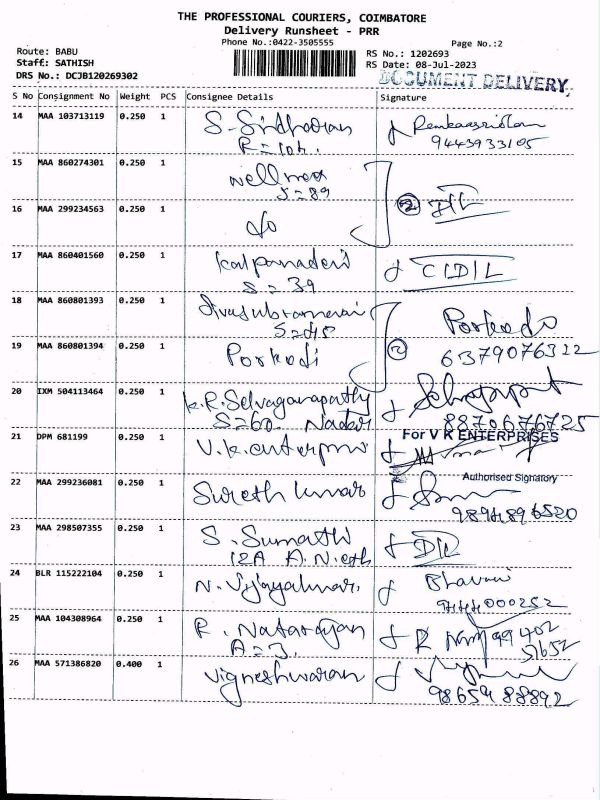 THE PROFESSIONAL COURIERS, COIMBATORE
Delivery Runsheet - PRR
Phone No.:0422-3505555
Page No.:2
Route: BABU
Staff: SATHISH
DRS No.: DCJB120269302
RS No.: 1202693
RS Date: 08-Jul-2023
DOCUMENT DELIVERY
S No Consignment No Weight PCS Consignee Details Signature
14 MAA 103713119 0.250 1 S. Sridharan
9443933105
15 MAA 860274301 0.250 1 Wellmed
S=89
16 MAA 299234563 0.250 1 do
2 DIL
17 MAA 860401560 0.250 1 Kalpanadevi CIDIL
S=39
18 MAA 860801393 0.250 1 Sivasubramanai Porkodi
S=45
19 MAA 860801394 0.250 1 Porkodi 2 6379076322
20 IXM 504113464 0.250 1 K.R. Selvaganapathy
S=60. Nadar 8870676725
21 DPM 681199 0.250 1 V.K. enterprises For V K ENTERPRISES
Authorised Signatory
22 MAA 299236081 0.250 1 Suresh kumar
9894896520
23 MAA 298507355 0.250 1 S. Sumathi DIL
12A
24 BLR 115222104 0.250 1 N. Vijayakumar. Bhavani
000252
25 MAA 104308964 0.250 1 R. Natarajan R 99402
A=3. 51652
26 MAA 571386820 0.400 1 Vigneshwaran
9865488892